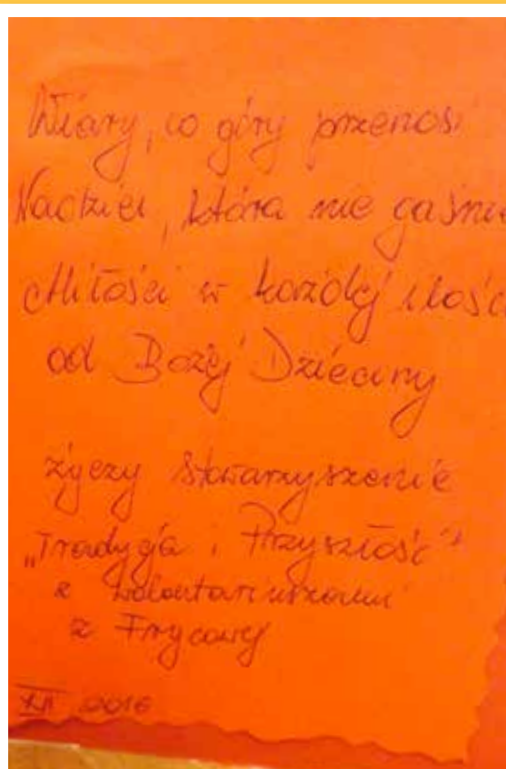 Wiary, co góry przenosi
Nadziei, która nie gaśnie
Miłości w każdej ilości
od Bożej Dzieciny
życzy Stowarzyszenie
„Tradycja i Przyszłość”
z wolontariuszami
z Frycowej
XII 2016